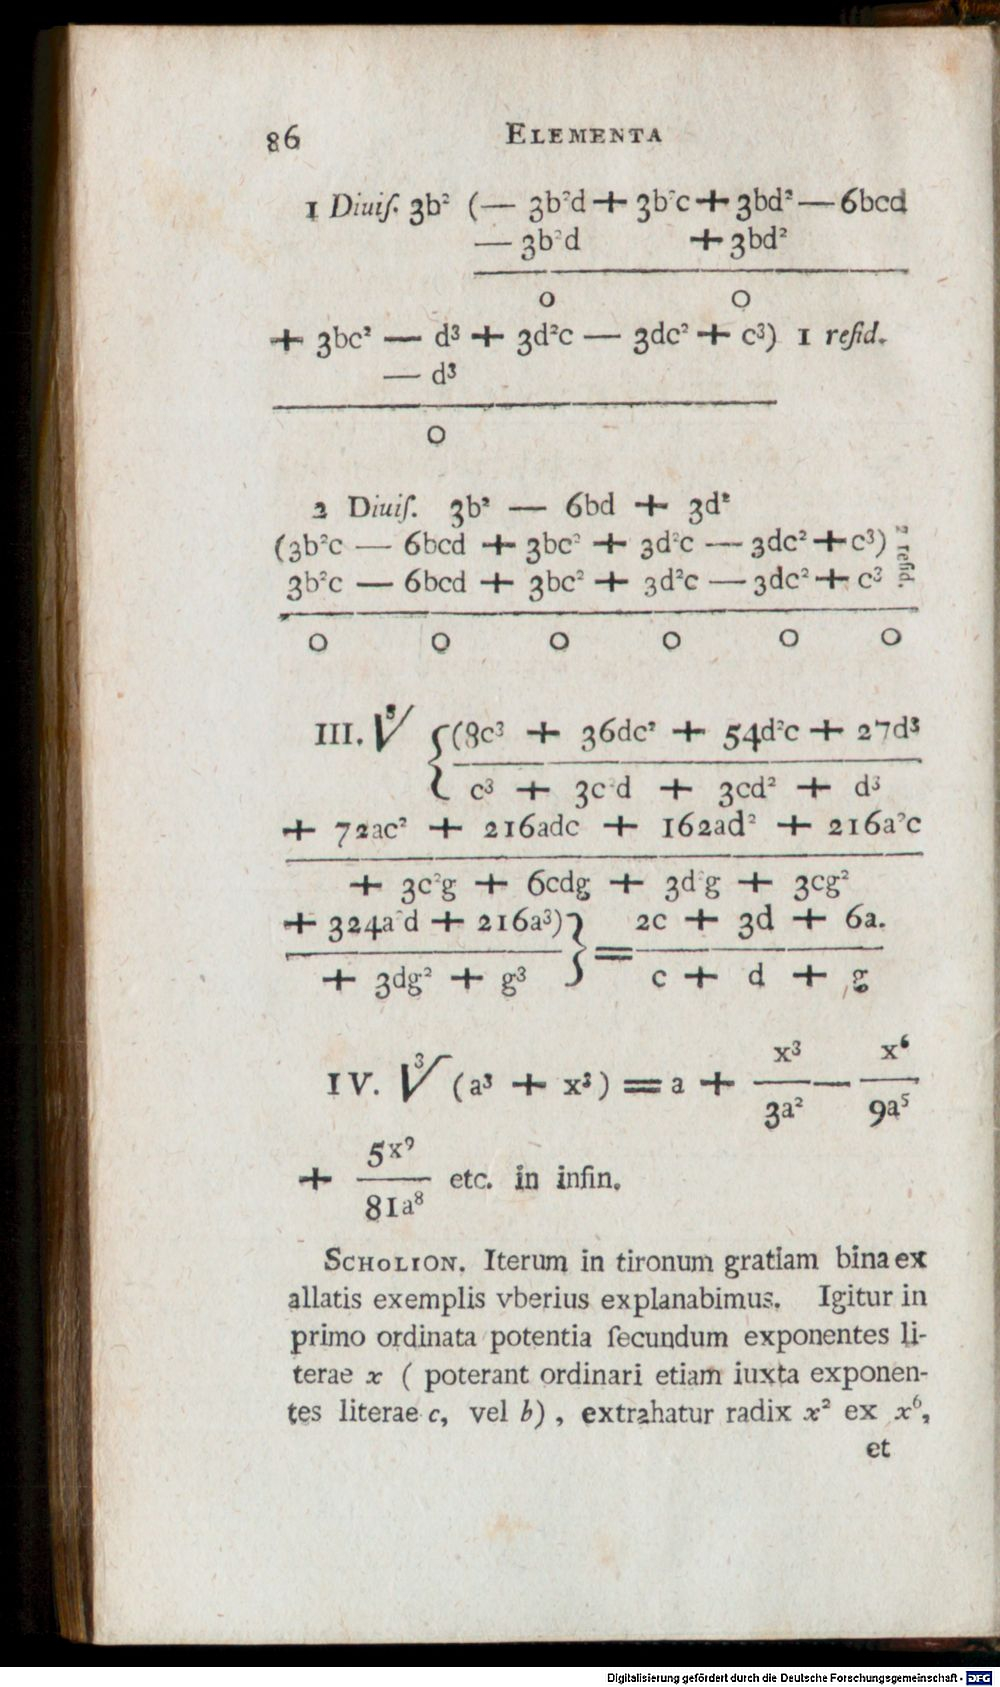 86 ELEMENTA
1 Diuiſ. 3b² (— 3b²d + 3b²c + 3bd² — 6bcd
— 3b²d + 3bd²
0 0
+ 3bc² — d³ + 3d²c — 3dc² + c³) 1 reſid.
— d³
0
2 Diuiſ. 3b² — 6bd + 3d²
(3b²c — 6bcd + 3bc² + 3d²c — 3dc² + c³) 2 reſid.
3b²c — 6bcd + 3bc² + 3d²c — 3dc² + c³
0 0 0 0 0 0
III. ³√ {(8c³ + 36dc² + 54d²c + 27d³
c³ + 3c²d + 3cd² + d³
+ 72ac² + 216adc + 162ad² + 216a²c
+ 3c²g + 6cdg + 3d²g + 3cg²
+ 324a²d + 216a³)} = 2c + 3d + 6a.
+ 3dg² + g³ c + d + g
IV. ³√ (a³ + x³) = a + x³/3a² — x⁶/9a⁵
+ 5x⁹/81a⁸ etc. in infin.
SCHOLION. Iterum in tironum gratiam bina ex
allatis exemplis vberius explanabimus. Igitur in
primo ordinata potentia ſecundum exponentes li-
terae x ( poterant ordinari etiam iuxta exponen-
tes literae c, vel b) , extrahatur radix x² ex x⁶,
et
Digitalisierung gefördert durch die Deutsche Forschungsgemeinschaft - DFG